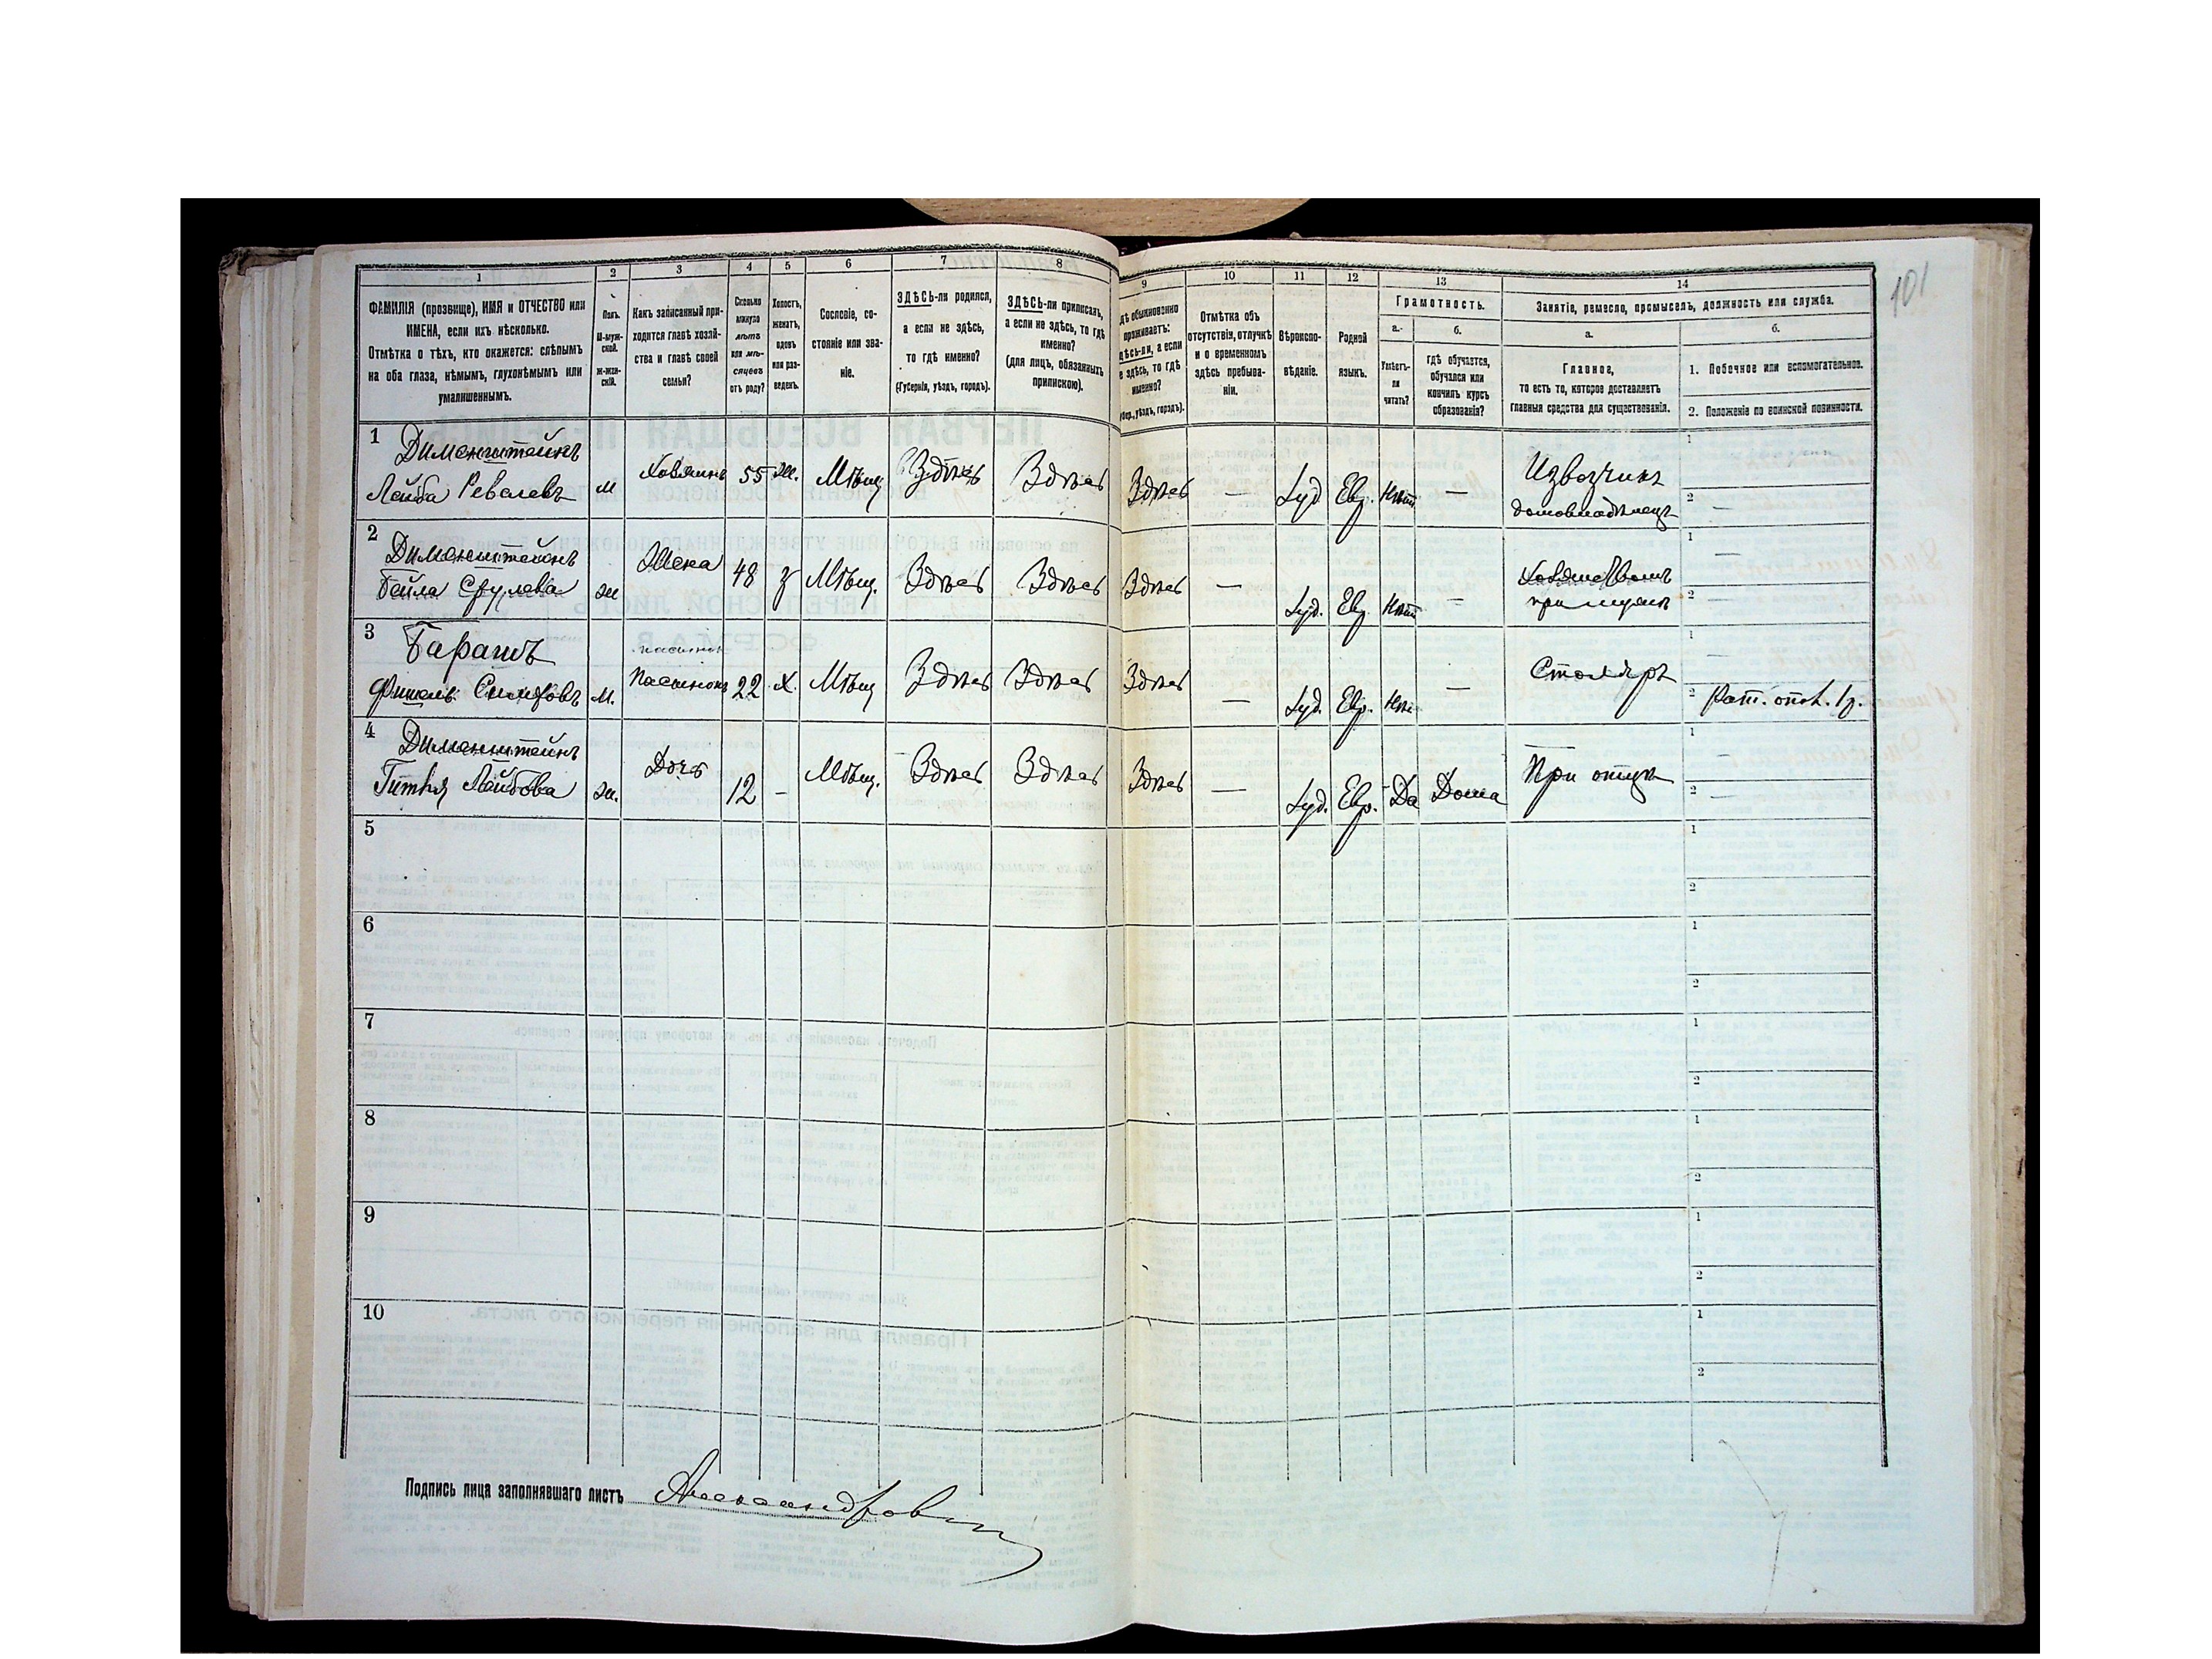 101
1
2
3
4
5
6
7
8
9
10
11
12
13
14
ФАМИЛІЯ (прозвище), ИМЯ и ОТЧЕСТВО или
ИМЕНА, если ихъ нѣсколько.
Отмѣтка о тѣхъ, кто окажется: слѣпымъ
на оба глаза, нѣмымъ, глухонѣмымъ или
умалишеннымъ.
Полъ.
М-муж-
ской.
Ж-жен-
скій.
Какъ записанный при-
ходится главѣ хозяй-
ства и главѣ своей
семьи?
Сколько
минуло
лѣтъ
или мѣ-
сяцевъ
отъ роду?
Холостъ,
женатъ,
вдовъ
или раз-
веденъ.
Сословіе, со-
стояніе или зва-
ніе.
ЗДѢСЬ-ли родился,
а если не здѣсь,
то гдѣ именно?
(Губернія, уѣздъ, городъ).
ЗДѢСЬ-ли приписанъ,
а если не здѣсь, то гдѣ
именно?
(для лицъ, обязанныхъ
припискою).
дѣ обыкновенно
проживаетъ:
дѣсь-ли, а если
е здѣсь, то гдѣ
именно?
убер., уѣздъ, городъ).
Отмѣтка объ
отсутствіи, отлучкѣ
и о временномъ
здѣсь пребыва-
ніи.
Вѣроиспо-
вѣданіе.
Родной
языкъ.
Грамотность.
а.
Умѣетъ-
ли
читать?
б.
гдѣ обучается,
обучался или
кончилъ курсъ
образованія?
Занятіе, ремесло, промыселъ, должность или служба.
а.
Главное,
то есть то, которое доставляетъ
главныя средства для существованія.
б.
1. Побочное или вспомогательное.
2. Положеніе по воинской повинности.
1
Диманштейнъ
Лейба м Хозяинъ 55 Ж. Мѣщ Здѣсь Здѣсь Здѣсь — Іуд Евр. Нѣтъ — Извозчикъ
домовладѣлецъ
1
2 —
2
Диманштейнъ
Бейла Срулева ж Жена 48 з Мѣщ. Здѣсь Здѣсь Здѣсь — Іуд. Евр. Нѣтъ — Хозяйством
при мужѣ
1 —
2 —
3
Барашъ
м. Пасынокъ 22 х. Мѣщ Здѣсь Здѣсь Здѣсь — Іуд. Евр. Нѣт — Столяръ
1 —
2 Рат. опол. 1 р.
4
Диманштейнъ
Гитля Лейбова ж. Дочь 12 – Мѣщ. Здѣсь Здѣсь Здѣсь — Іуд. Евр. Да Дома При отцѣ
1 —
2 —
5
1
2
6
1
2
7
1
2
8
1
2
9
1
2
10
1
2
Подпись лица заполнявшаго листъ